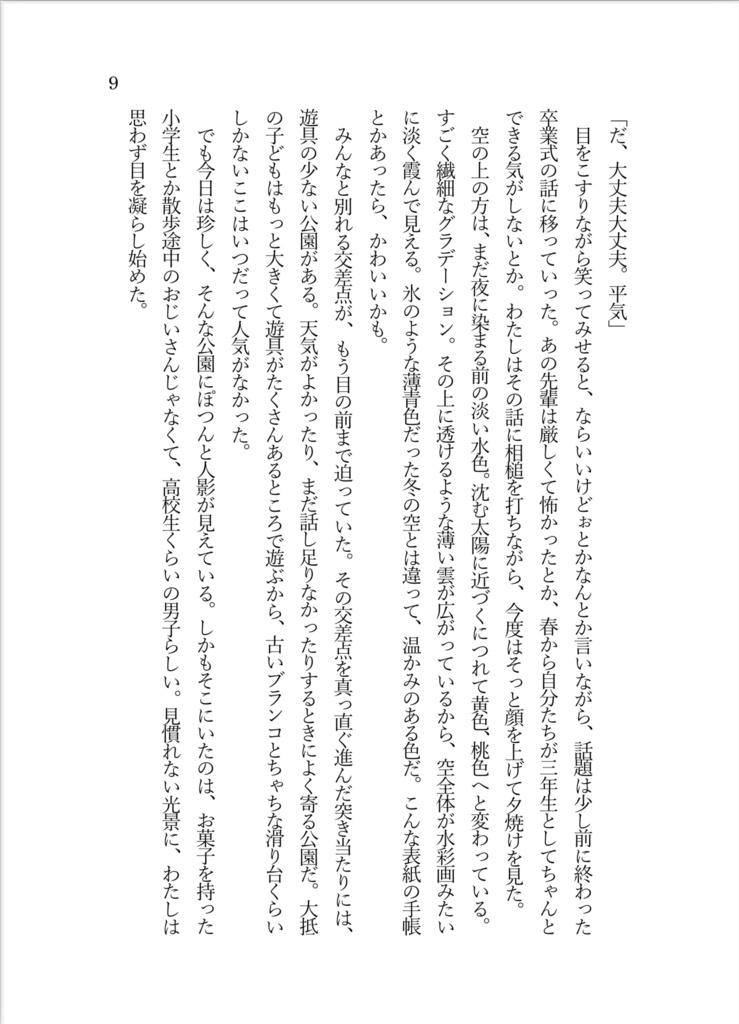 「だ、大丈夫大丈夫。平気」
　目をこすりながら笑ってみせると、ならいいけどぉとかなんとか言いながら、話題は少し前に終わった
卒業式の話に移っていった。あの先輩は厳しくて怖かったとか、春から自分たちが三年生としてちゃんと
できる気がしないとか。わたしはその話に相槌を打ちながら、今度はそっと顔を上げて夕焼けを見た。
　空の上の方は、まだ夜に染まる前の淡い水色。沈む太陽に近づくにつれて黄色、桃色へと変わっている。
すごく繊細なグラデーション。その上に透けるような薄い雲が広がっているから、空全体が水彩画みたい
に淡く霞んで見える。氷のような薄青色だった冬の空とは違って、温かみのある色だ。こんな表紙の手帳
とかあったら、かわいいかも。
　みんなと別れる交差点が、もう目の前まで迫っていた。その交差点を真っ直ぐ進んだ突き当たりには、
遊具の少ない公園がある。天気がよかったり、まだ話し足りなかったりするときによく寄る公園だ。大抵
の子どもはもっと大きくて遊具がたくさんあるところで遊ぶから、古いブランコとちゃちな滑り台くらい
しかないここはいつだって人気がなかった。
　でも今日は珍しく、そんな公園にぽつんと人影が見えている。しかもそこにいたのは、お菓子を持った
小学生とか散歩途中のおじいさんじゃなくて、高校生くらいの男子らしい。見慣れない光景に、わたしは
思わず目を凝らし始めた。
9